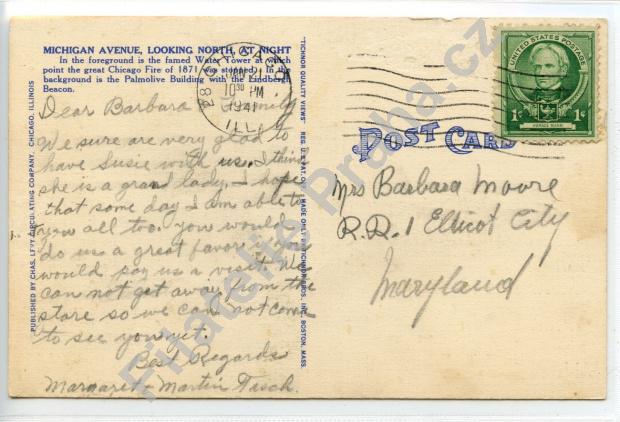 MICHIGAN AVENUE, LOOKING NORTH, AT NIGHT
In the foreground is the famed Water Tower at which
point the great Chicago Fire of 1871 was stopped. In the
background is the Palmolive Building with the Lindbergh
Beacon.
Dear Barbara & Family
We sure are very glad to
have Susie with us. I think
she is a grand lady. I hope
that some day I am able to
you all too. you would
do us a great favor if you
would pay us a visit. We
can not get away from the
store so we can not come
to see you yet.
Best Regards
Margaret + Martin Tisch.
PUBLISHED BY CHAS. LEVY CIRCULATING COMPANY, CHICAGO, ILLINOIS
"TICHNOR QUALITY VIEWS" REG. U. S. PAT. OFF. MADE ONLY BY TICHNOR BROS. INC., BOSTON, MASS.
10 30 PM
1941
ILL.
POST CARD
UNITED STATES POSTAGE
1¢ 1¢
HORACE MANN
Mrs Barbara Moore
R.R. 1 Ellicot City
Maryland
Filatelie Praha.cz